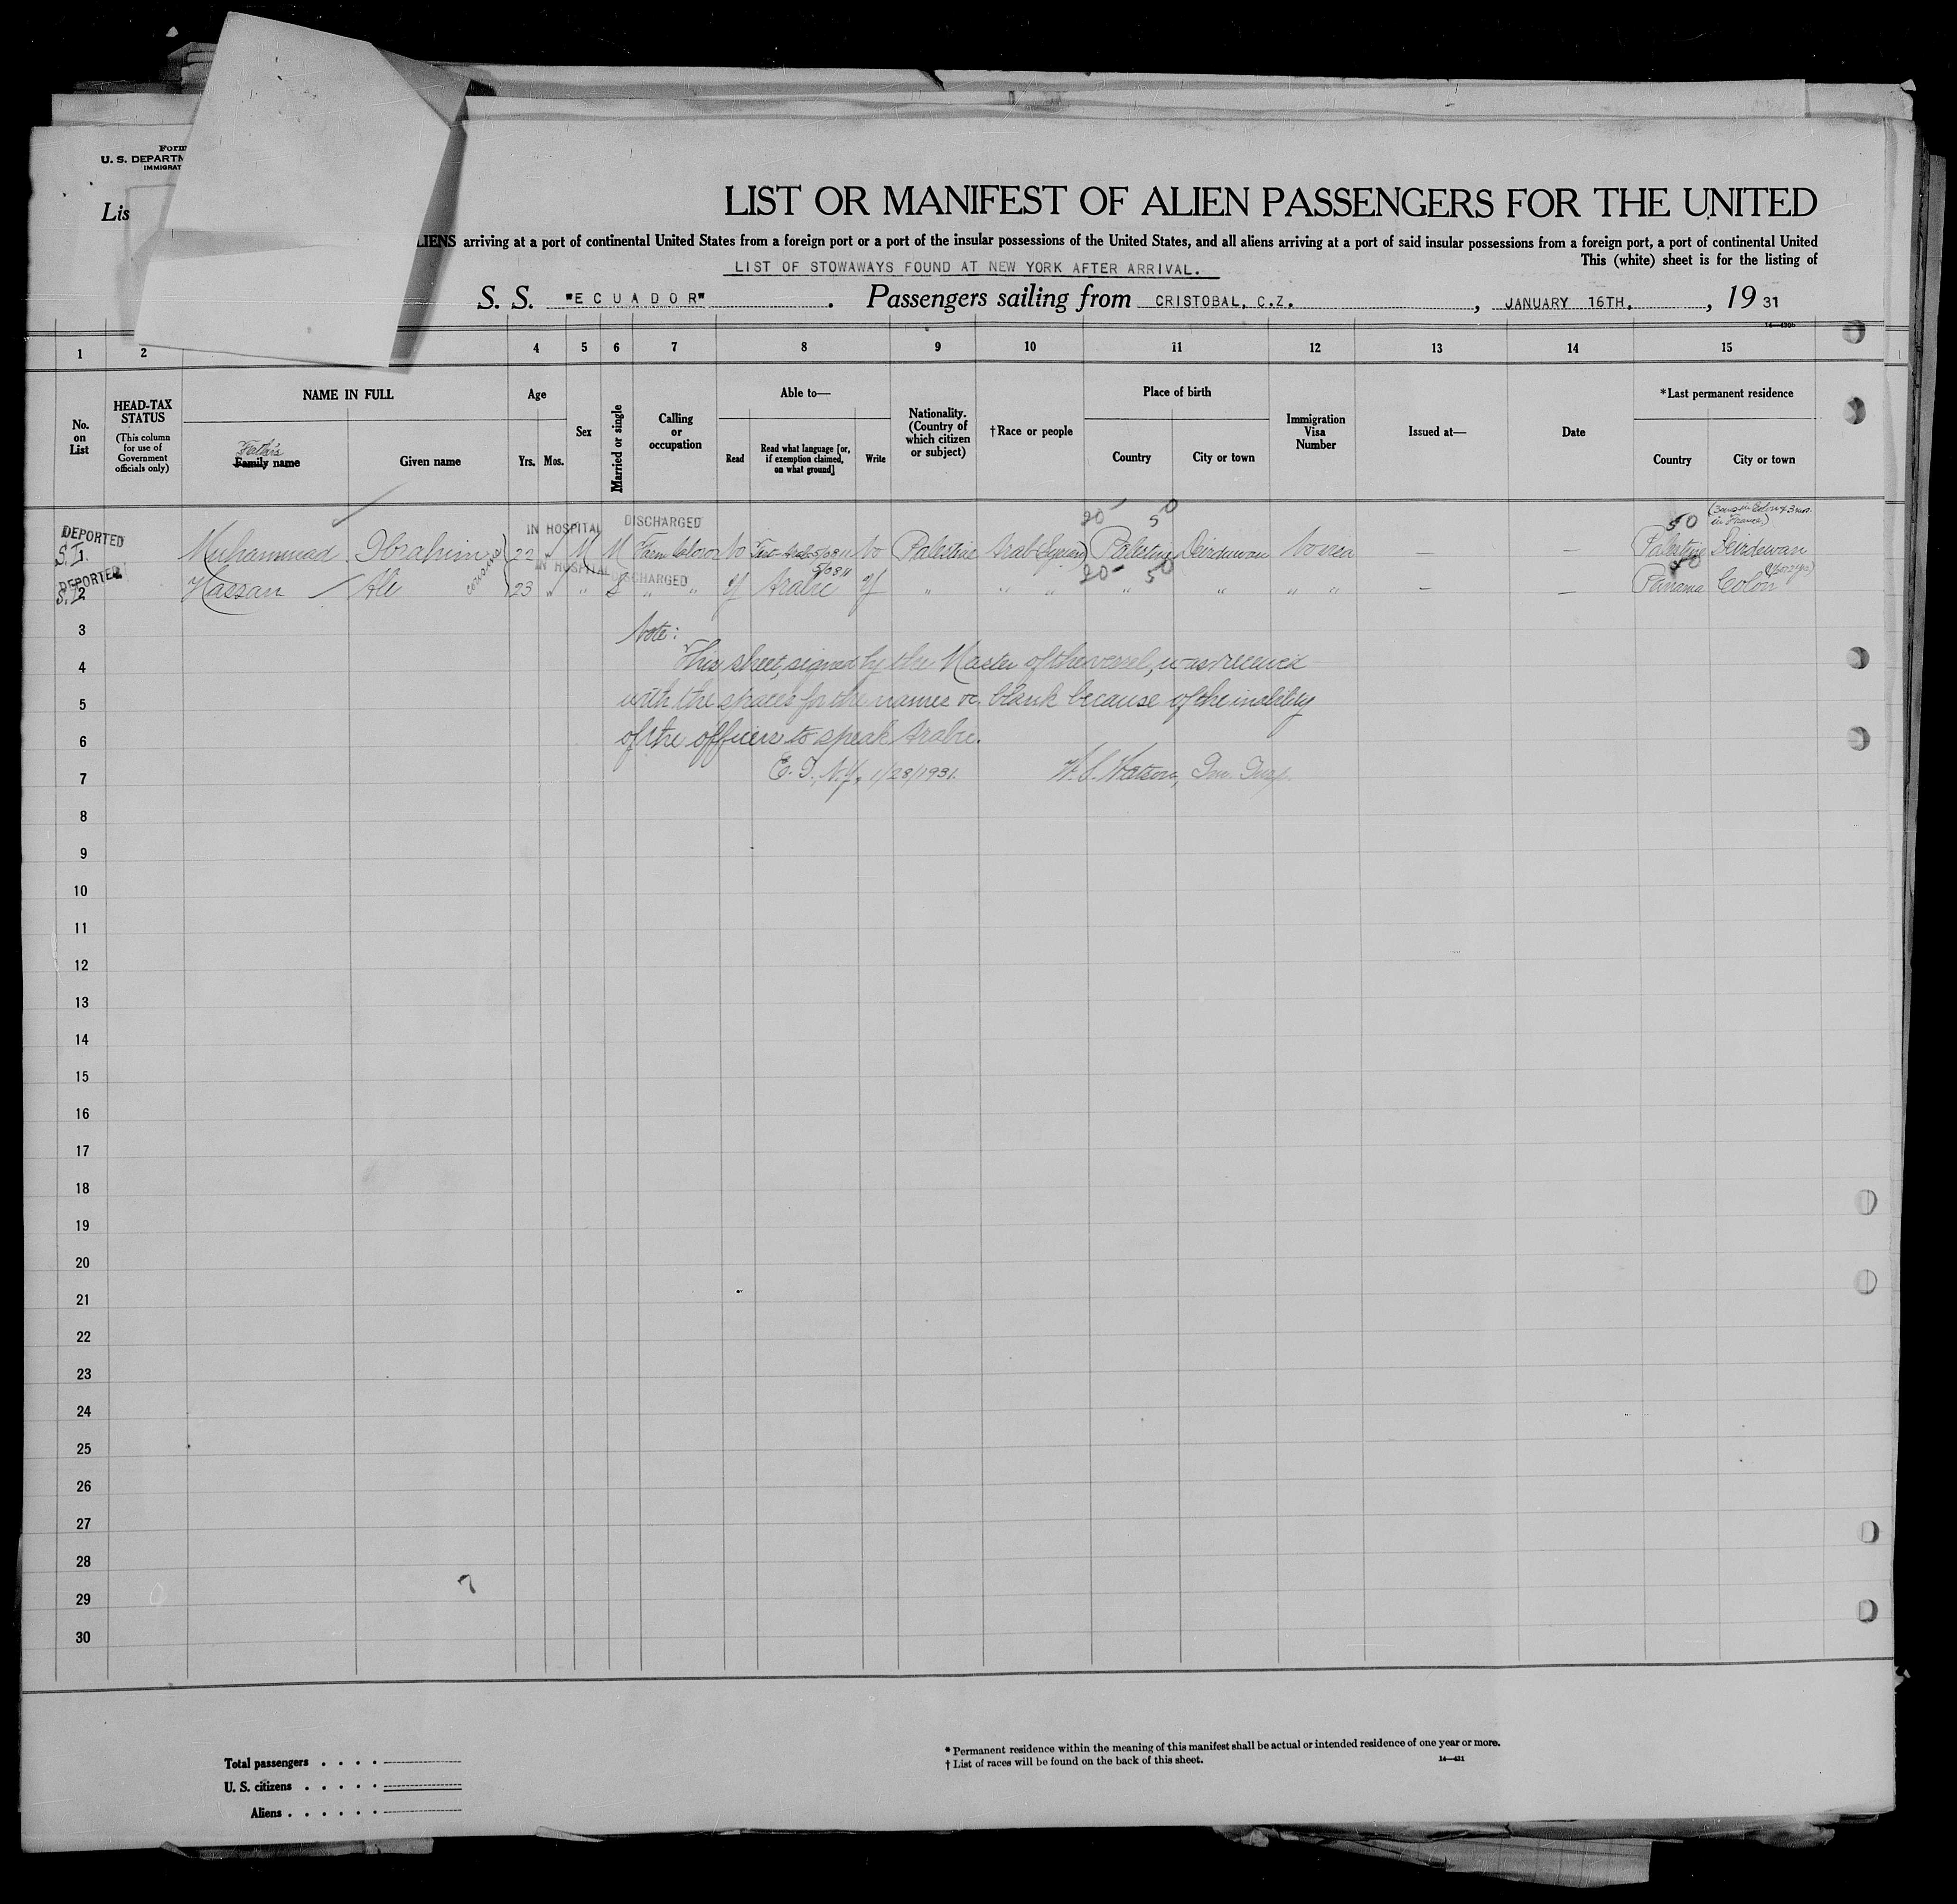 Form
U. S. DEPARTM
IMMIGRAT
Lis
LIST OR MANIFEST OF ALIEN PASSENGERS FOR THE UNITED
LIENS arriving at a port of continental United States from a foreign port or a port of the insular possessions of the United States, and all aliens arriving at a port of said insular possessions from a foreign port, a port of continental United
This (white) sheet is for the listing of
LIST OF STOWAWAYS FOUND AT NEW YORK AFTER ARRIVAL.
S. S. "ECUADOR". Passengers sailing from CRISTOBAL, C.Z., JANUARY 16TH., 19 31
14—430b
1 2 4 5 6 7 8 9 10 11 12 13 14 15
No. on List
HEAD-TAX STATUS
(This column for use of Government officials only)
NAME IN FULL
Father's
Family name
Given name
Age
Yrs. Mos.
Sex
Married or single
Calling or occupation
Able to—
Read
Read what language [or, if exemption claimed, on what ground]
Write
Nationality. (Country of which citizen or subject)
†Race or people
Place of birth
Country
City or town
Immigration Visa Number
Issued at—
Date
*Last permanent residence
Country
City or town
20 50
50
in France)
DEPORTED IN HOSPITAL DISCHARGED
S.I. 1 Muhammad Ibrahim 22 M M Farm laborer No No Palestine Arab (Syrian) Palestine Deirdewan No visa — — Palestine Deirdewan
DEPORTED IN HOSPITAL DISCHARGED 20 50 50
S.I. 2 Hassan Ali 23 " " S " " Y Arabic Y " " " " " " " — — Panama Colon
3
Note:
4
This sheet, signed by the Master of the vessel, was received
5
with the spaces for the names etc. blank because of the inability
6
of the officers to speak Arabic.
7
E. I., N.Y., 1/28/1931. W. S. Watson, Im. Insp.
8
9
10
11
12
13
14
15
16
17
18
19
20
21
22
23
24
25
26
27
28
29
30
7
Total passengers . . . .
U. S. citizens . . . . .
Aliens . . . . . .
* Permanent residence within the meaning of this manifest shall be actual or intended residence of one year or more.
† List of races will be found on the back of this sheet.
14—431